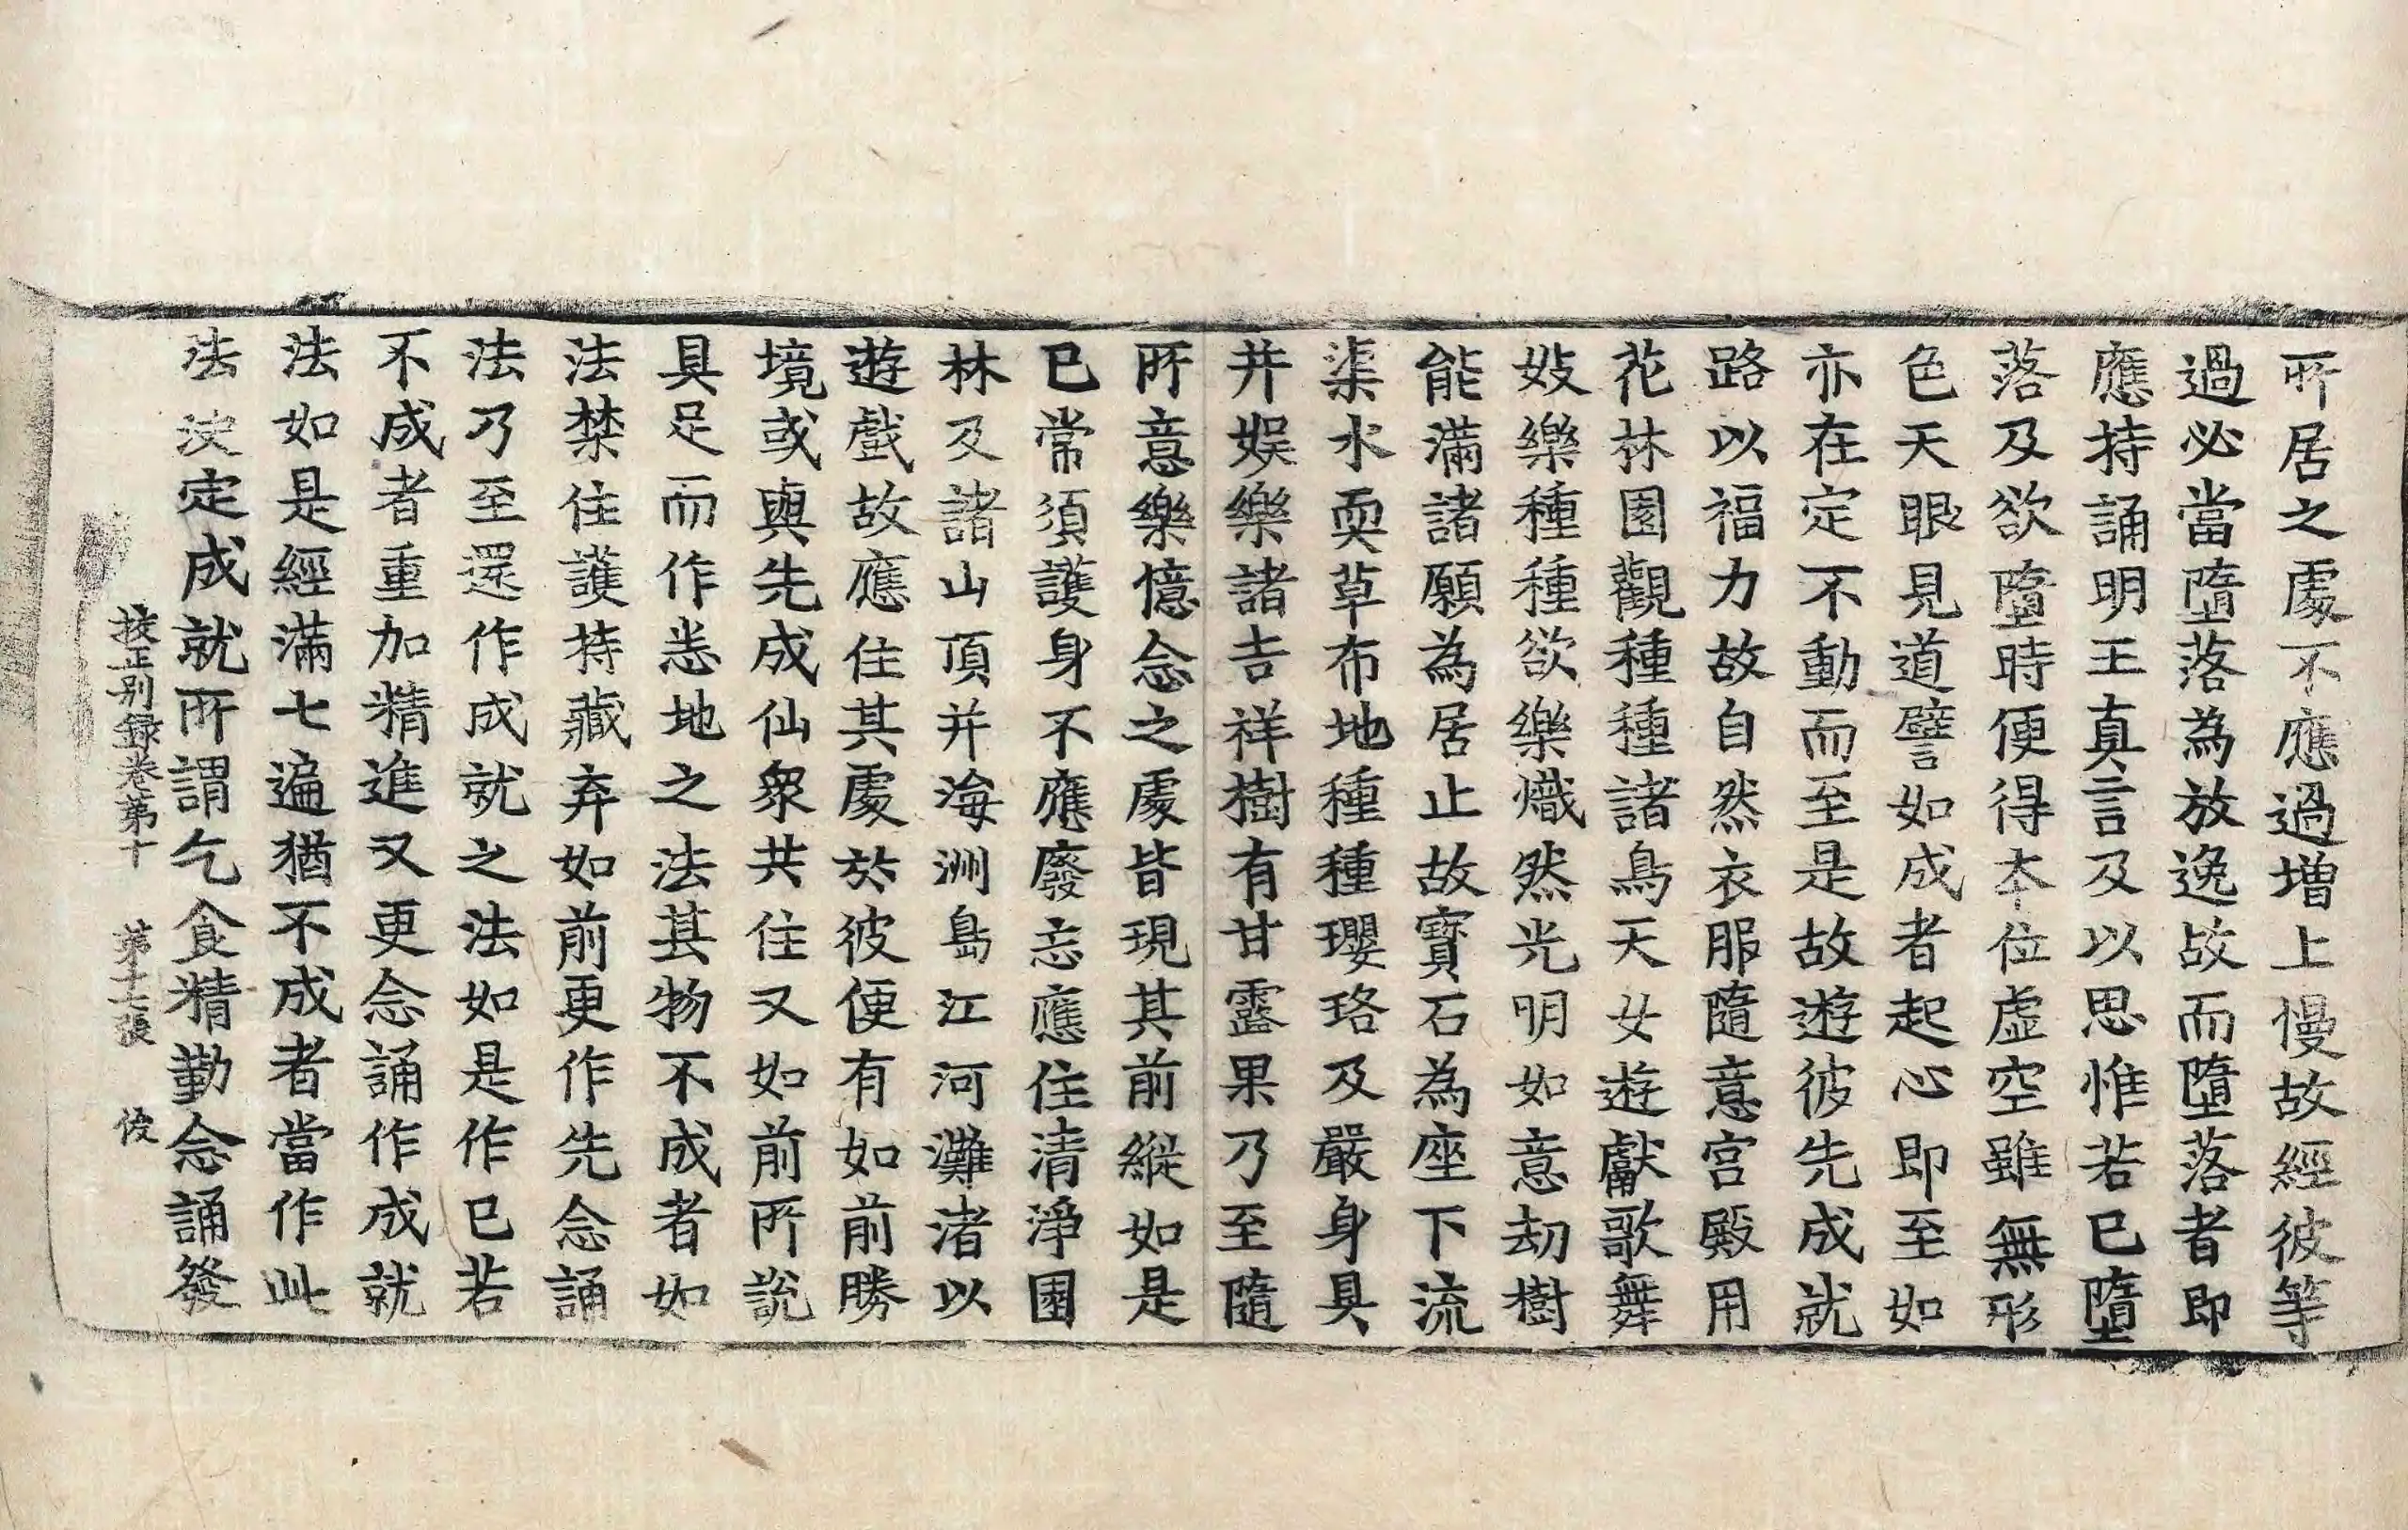 所居之處不應過增上慢故經彼等
過必當墮落為放逸故而墮落者即
應持誦明王真言及以思惟若已墮
落及欲墮時便得本位虛空雖無形
色天眼見道譬如成者起心即至如
亦在定不動而至是故遊彼先成就
路以福力故自然衣服隨意宮殿用
花林園觀種種諸鳥天女遊獻歌舞
妓樂種種欲樂熾然光明如意劫樹
能滿諸願為居止故寶石為座下流
渠水耎草布地種種瓔珞及嚴身具
并娛樂諸吉祥樹有甘露果乃至隨
所意樂憶念之處皆現其前縱如是
已常須護身不應廢忘應住清淨園
林及諸山頂并海洲島江河灘渚以
遊戲故應住其處於彼便有如前勝
境或與先成仙眾共住又如前所說
具足而作悉地之法其物不成者如
法禁住護持藏弃如前更作先念誦
法乃至還作成就之法如是作已若
不成者重加精進又更念誦作成就
法如是經滿七遍猶不成者當作此
法決定成就所謂乞食精勤念誦發
挍正別録卷第十 第十七張 俊